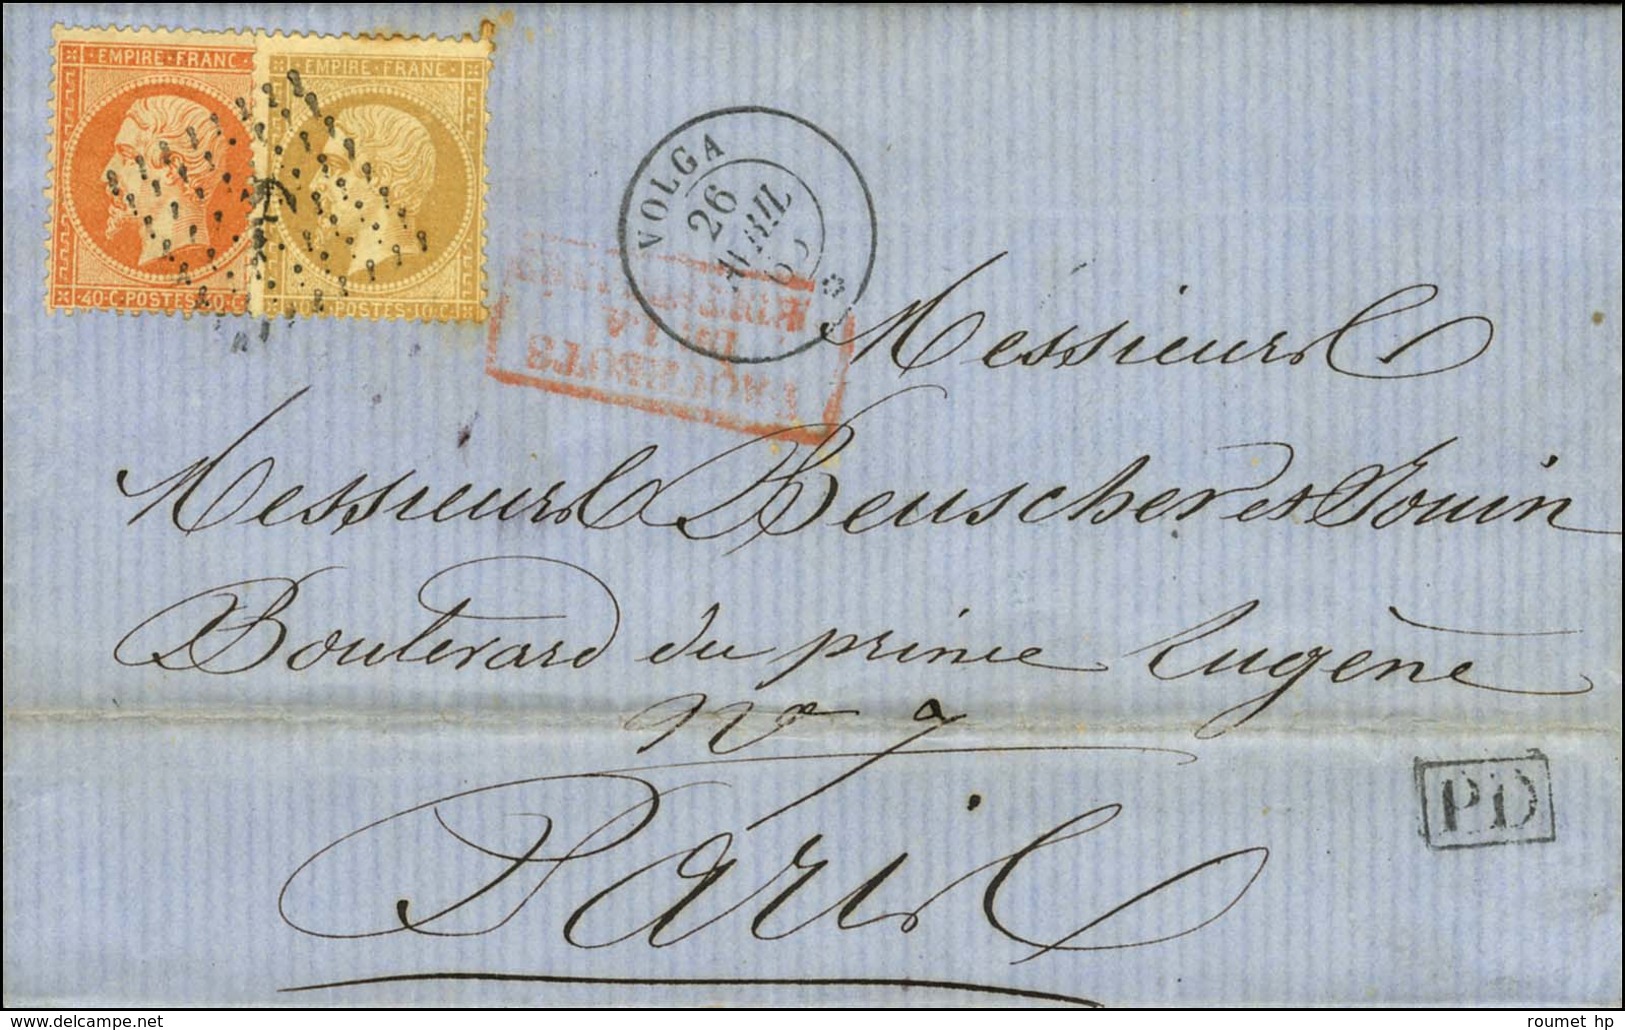 EMPIRE · FRANC
40·C·POSTES·40·C
EMPIRE · FRANC
POSTES·10·C
VOLGA
26
AVRIL
PAQUEBOTS
DE LA
Messieurs
Messieurs Heuscher et Jouin
Boulevard du prince Eugène
No 7
Paris
PD
www.delcampe.net
roumet hp